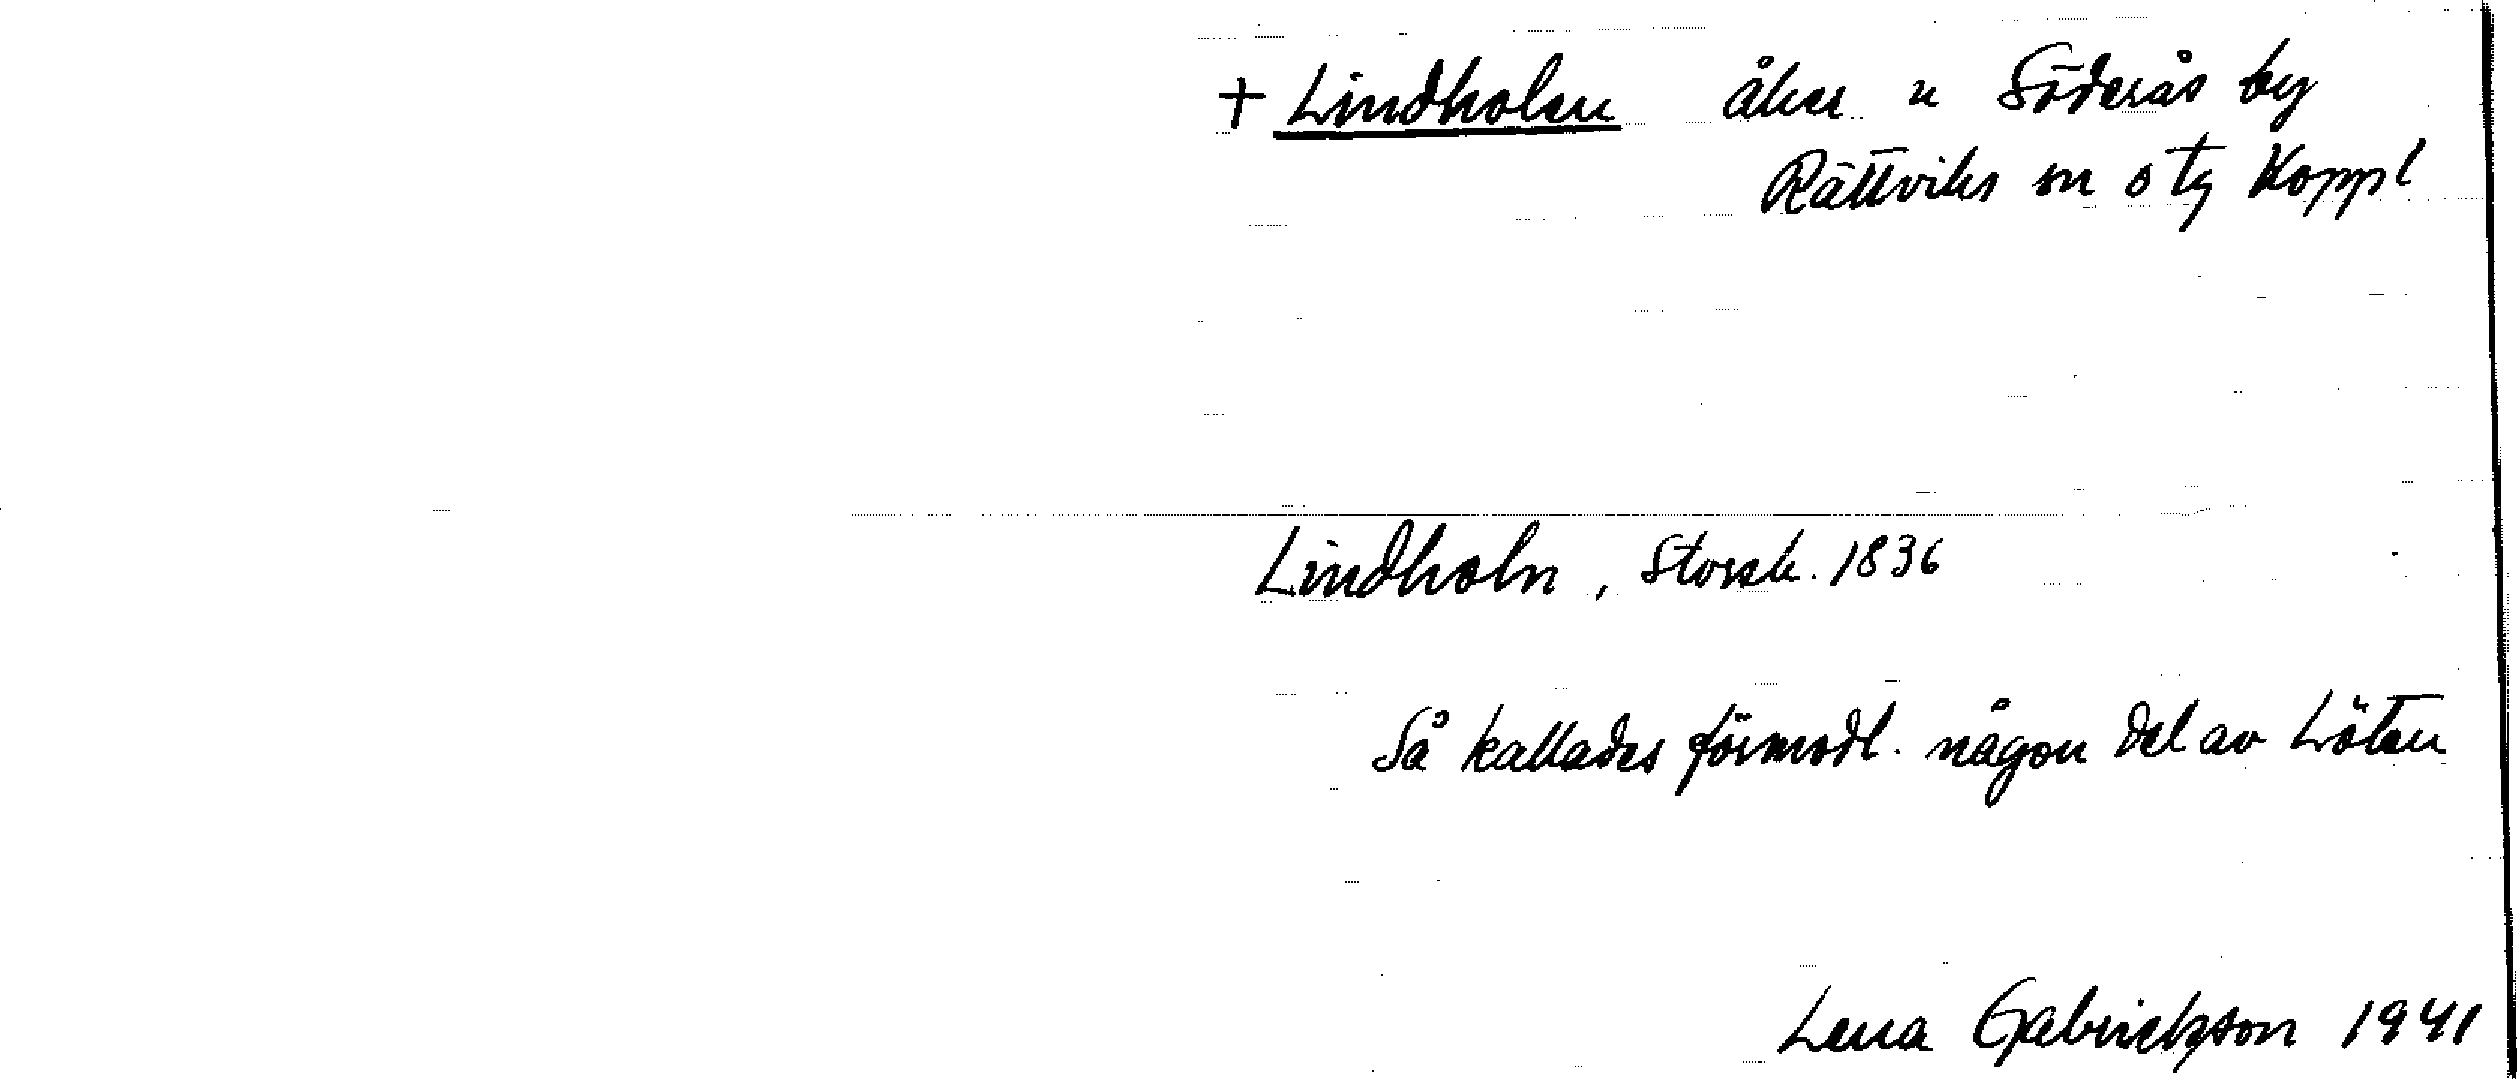 + Lindholen åker n Söderås by
Rättviks sn o tg Koppl
Lindholn, Storsk. 1836
Så kallades förmodl. någon del av Löten
Lena Gabrielsson 1941